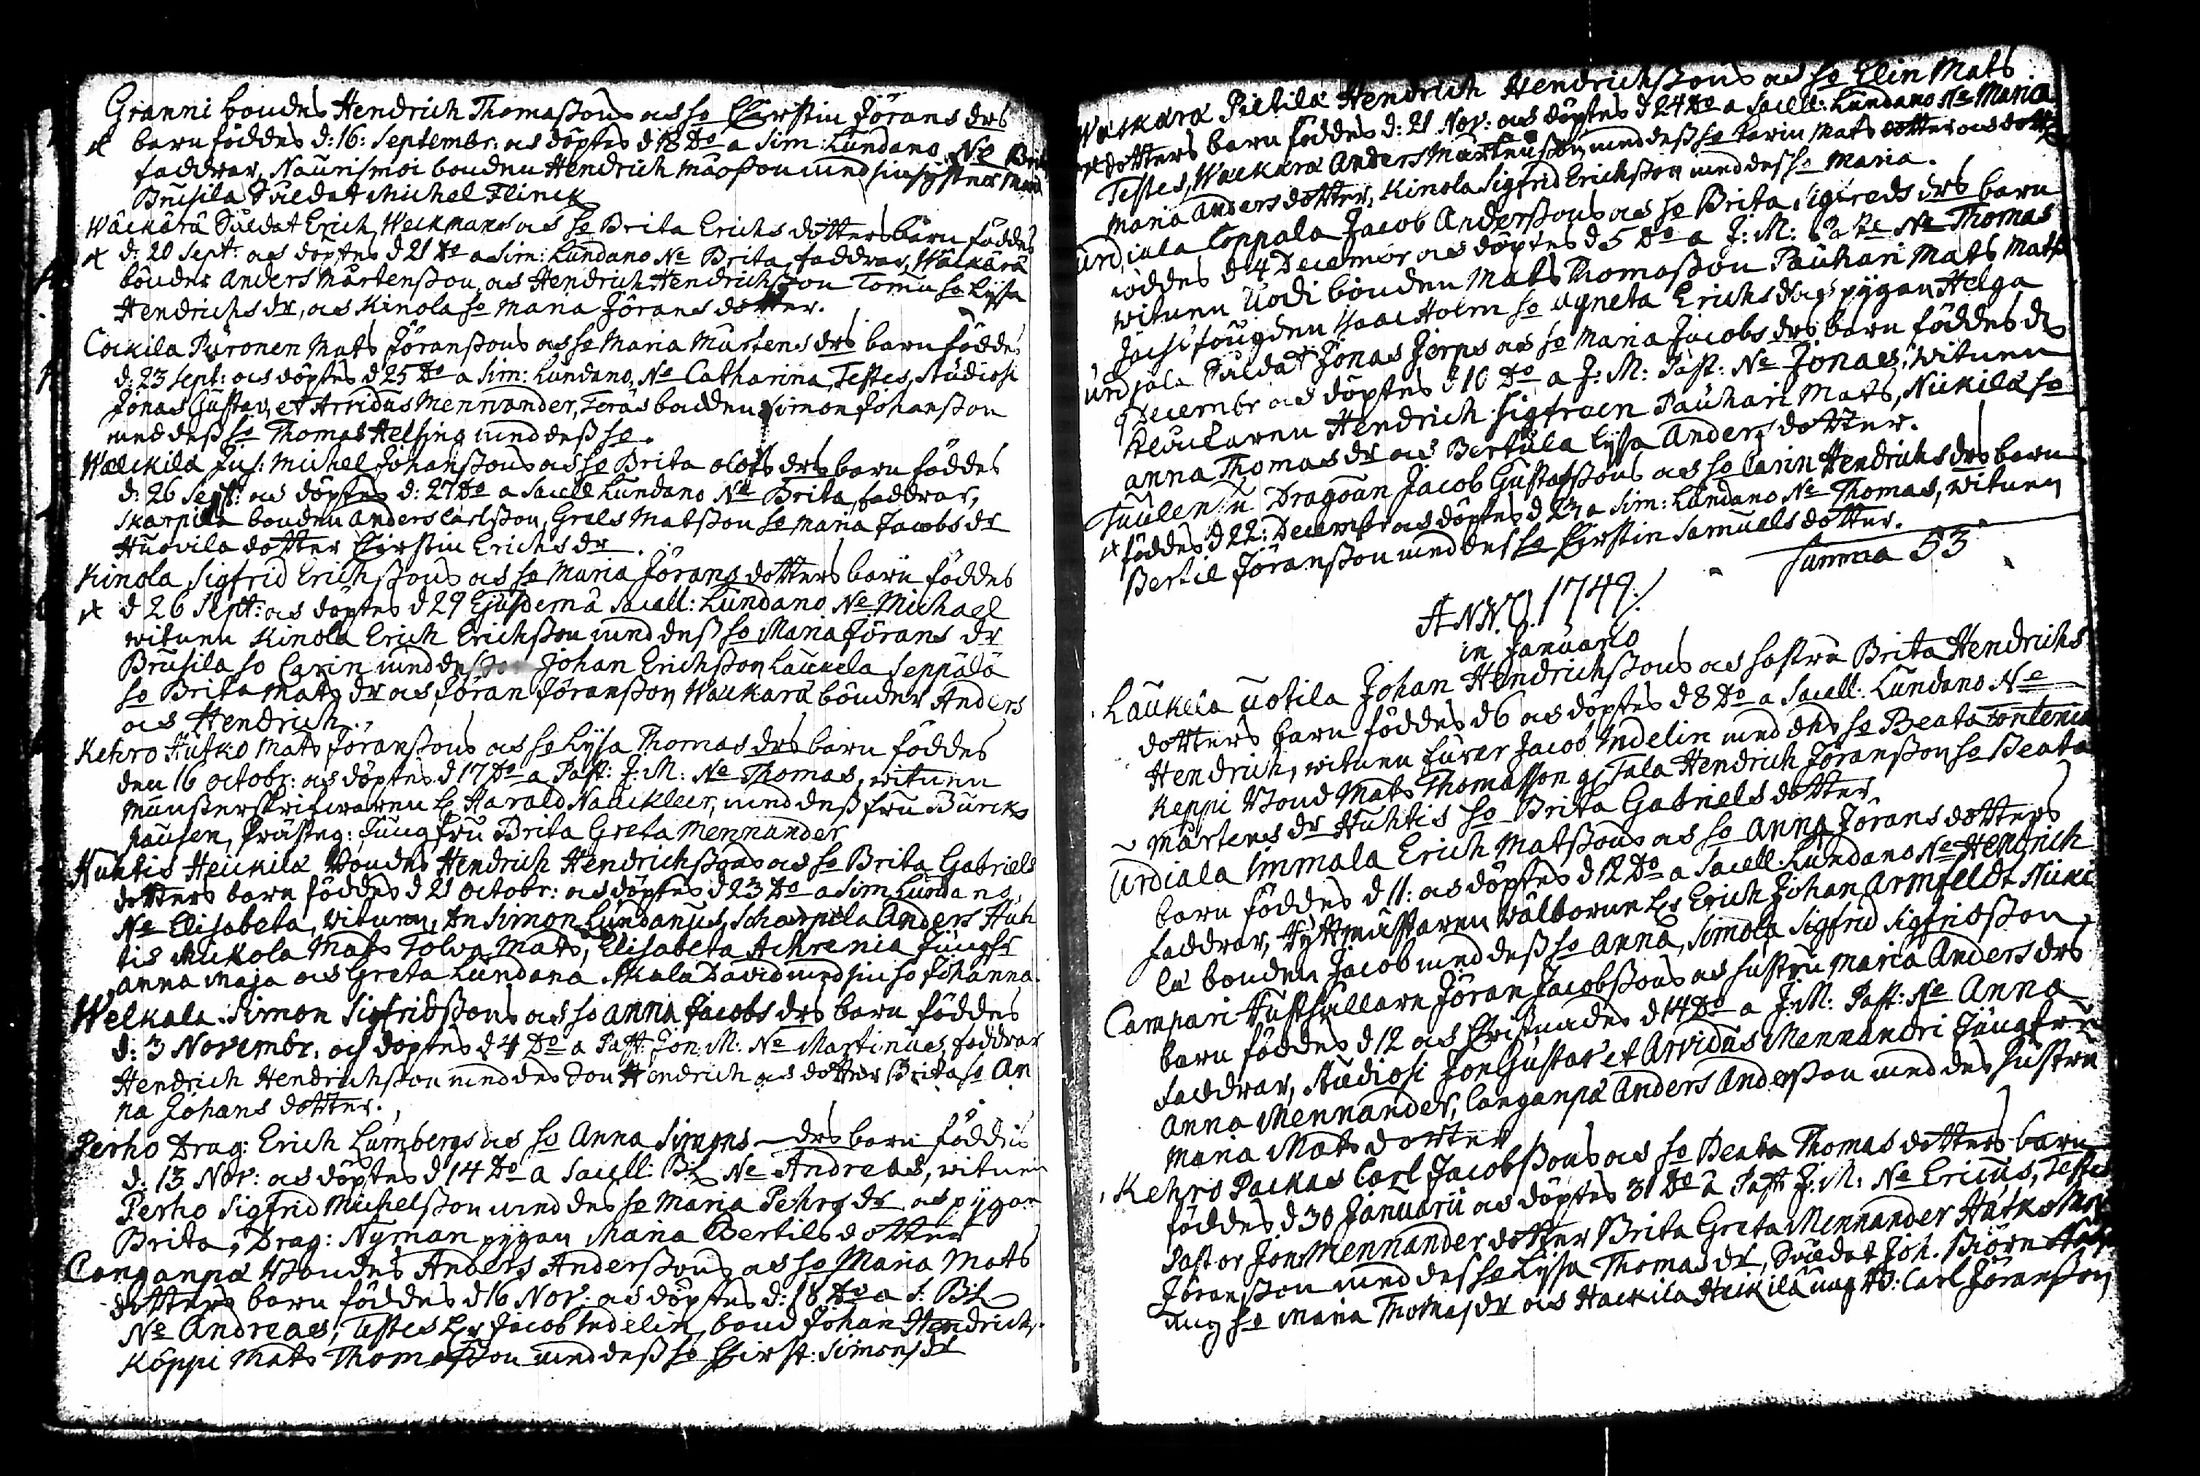 Granni bondes Hendrich Thomassons och ho Chirstin Jörans drs
barn föddes d: 16: Septembr: och döptes d 18 Do a Sim: Lundano Ne Brita
faddrar, Naurismoi bonden Hendrich Matsson med sin syster Maria
Brusila Suldat Michel Flinck
Wäckärä Suldat Erich Weckmans och ho Brita Erichs dotters barn föddes
d: 20 Sept: och döptes d 21 Do a Sim: Lundano Ne Brita, faddrar, Wäckärä
bonden Anders Mårtensson, och Hendrich Hendrichsson Tomu ho Lysa
Hendrichs dr, och Kinola ho Maria Jörans dotter.
Cockila Puronen Mats Jöranssons och ho Maria Mårtens drs barn föddes
d: 23 Sept: och döptes d 25 Do a Sim: Lundano, Ne Catharina, Testes, Studiosi
Jonas Gustav, et Arvidus Mennander, Toras bonden Simon Johansson
med dess ho Thomas Helsing med dess ho.
Wälckilä Jus: Michel Johanssons och ho Brita Olofs drs barn föddes
d: 26 Sept: och döptes d: 27 Do a Sacell Lundano Ne Brita, faddrar,
Skarpila bonden Anders Carlsson, Grels Matsson ho Maria Jacobs dr
Huovila dotter Chirstin Erichs dr.
Kinola Sigfrid Erichssons och ho Maria Jörans dotters barn föddes
d 26 Sept: och döptes d 29 Ejusdem a Sacell: Lundano Ne Michael
witnen Kinola Erich Erichsson med dess ho Maria Jörans dr
Brusila ho Carin med dess son Johan Erichsson Laukela Seppälä
ho Brita Mats dr och Jöran Jöransson Wäckärä bonden Anders
och Hendrich.
Kehro Hutko Mats Jöranssons och ho Lysa Thomas drs barn föddes
den 16 octobr: och döptes d 17 Do a Past: J: M: Ne Thomas, witnen
Munsterskrifwaren H Harald Nauckleer, med dess fru Burck
hausen, Präsng: Jungfru Brita Greta Mennander
Huhtis Heickilä Bondes Hendrich Hendrichssons och ho Brita Gabriels
dotters barn föddes d 21 octobr: och döptes d 23 Do a Sim Lundano
Ne Elisabeta, witnen, Dn Simon Lundanus, Scharpila Anders Huh
tis Mickola Mats Tolva Mats, Elisabeta Achrenia Jungfr
Anna Maja och Greta Lundana. Skala David med sin ho Johanna.
Welkala Simon Sigfridssons och ho Anna Jacobs drs barn föddes
d: 3 Novembr. och döptes d 4 Do a Past: Jon: M: Ne Martinus, faddrar
Hendrich Hendrichsson med des son Hendrich och dotter Brita ho An
na Johans dotter.
Perho Drag: Erich Lumbergs och ho Anna Simons drs barn föddis
d: 13 Nov: och döptes d 14 Do a Sacell: BL Ne Andreas, witnen
Perho Sigfrid Michelsson med des ho Maria Pehrs dr och pygan
Brita, Drag: Nyman pygan Maria Bertils dotter
Conganpä Bondes Anders Anderssons och ho Maria Mats
dotters barn föddes d 16 Nov: och döptes d: 18 Do a S: BL
Ne Andreas, Testes Hr Jacob Indelin, bond Johan Hendrichs.
Köppi Mats Thomasson med dess ho Chirst: Simons dr
Wäckärä Pietilä Hendrich Hendrichssons och ho Elin Mats
dotters barn föddes d: 21 Nov: och döptes d 24 Do a Sacell: Lundano Ne Maria
Testes, Wäckärä Anders Mårtensson med dess ho Carin Mats dotter och dotter
Maria Anders dotter, Kinola Sigfrid Erichsson med des ho Maria.
Urdiala Coppala Jacob Anderssons och ho Brita Sigfreds drs barn
föddes d 4 Decembr och döptes d 5 Do a J: M: Past: Ne Thomas
witnen Uodi bonden Mats Thomasson Pauhari Mats Mats
Isac Holm ho Agneta Erichs dr och pygan Helga
Urdjala Suldat Jonas Jerps och ho Maria Jacobs drs barn föddes d
9 Decembr och döptes d 10 Do a J: M: Past: Ne Jonas, witnen
Klockaren Hendrich Sigfroen Pauhari Mats, Nickilä ho
Anna Thomas dr och Bertula Lysa Anders dotter.
Dragoun Jacob Gustafssons och ho Carin Hendrichs drs barn
föddes d 22: Decembr och döptes d 23 a Sim: Lundano Ne Thomas, witnen
Bertil Jöransson med des ho Chirstin Samuels dotter.
Summa 53
ANNO. 1749.
in Januario
Laukela Uotila Johan Hendrichssons och hustru Brita Hendrichs
dotters barn föddes d 6 och döptes d 8 Do a Sacell. Lundano Ne
Hendrich, witnen furer Jacob Indelin med des ho Beata
Keppi Bond Mats Thomasson Hendrich Jöransson ho Beata
Mårtens dr Huhtis ho Brita Gabriels dotter
Urdiala Immala Erich Matssons och ho Anna Jörans dotters
barn föddes d 11: och döptes d 12 Do a Sacell. Lundano Ne Hendrich
faddrar, Ryttmästaren Wälborne Hr Erich Johan Armfeldt Nicki
lä bonden Jacob med dess ho Anna, Simola Sigfrid Sigfridsson,
Campari Husthållare Jöran Jacobssons och hustru Maria Anders drs
barn föddes d 12 och Christnades d 14 Do a J. M: Past: Ne Anna
faddrar, Studiosi Jon Gustav et Arvidus Mennandri Jungfru
Anna Mennander, Conganpä Anders Andersson med des hustru
Maria Mats dotter
Kehro Packas Carl Jacobssons och ho Beata Thomas dotters barn
föddes d 30 Januarii och döptes 31 Do a Past: J: M: Ne Ericus, Testes
Pastor Jon: Mennander dotter Brita Greta Mennander Hutko Mats
Jöransson med des ho Lysa Thomas dr, Suldat Joh. Biörn
ho Maria Thomas dr och Hackila Heikilä Carl Jöransson